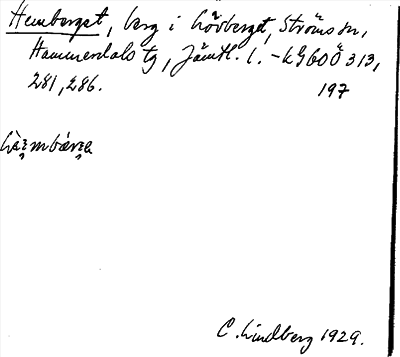 Hemberget, berg i Lövberget, Ströms sn,
Hammerdals tg, Jämtl. l. - kGbOÖ 313,
281, 286. 197
C. Lindberg 1929.